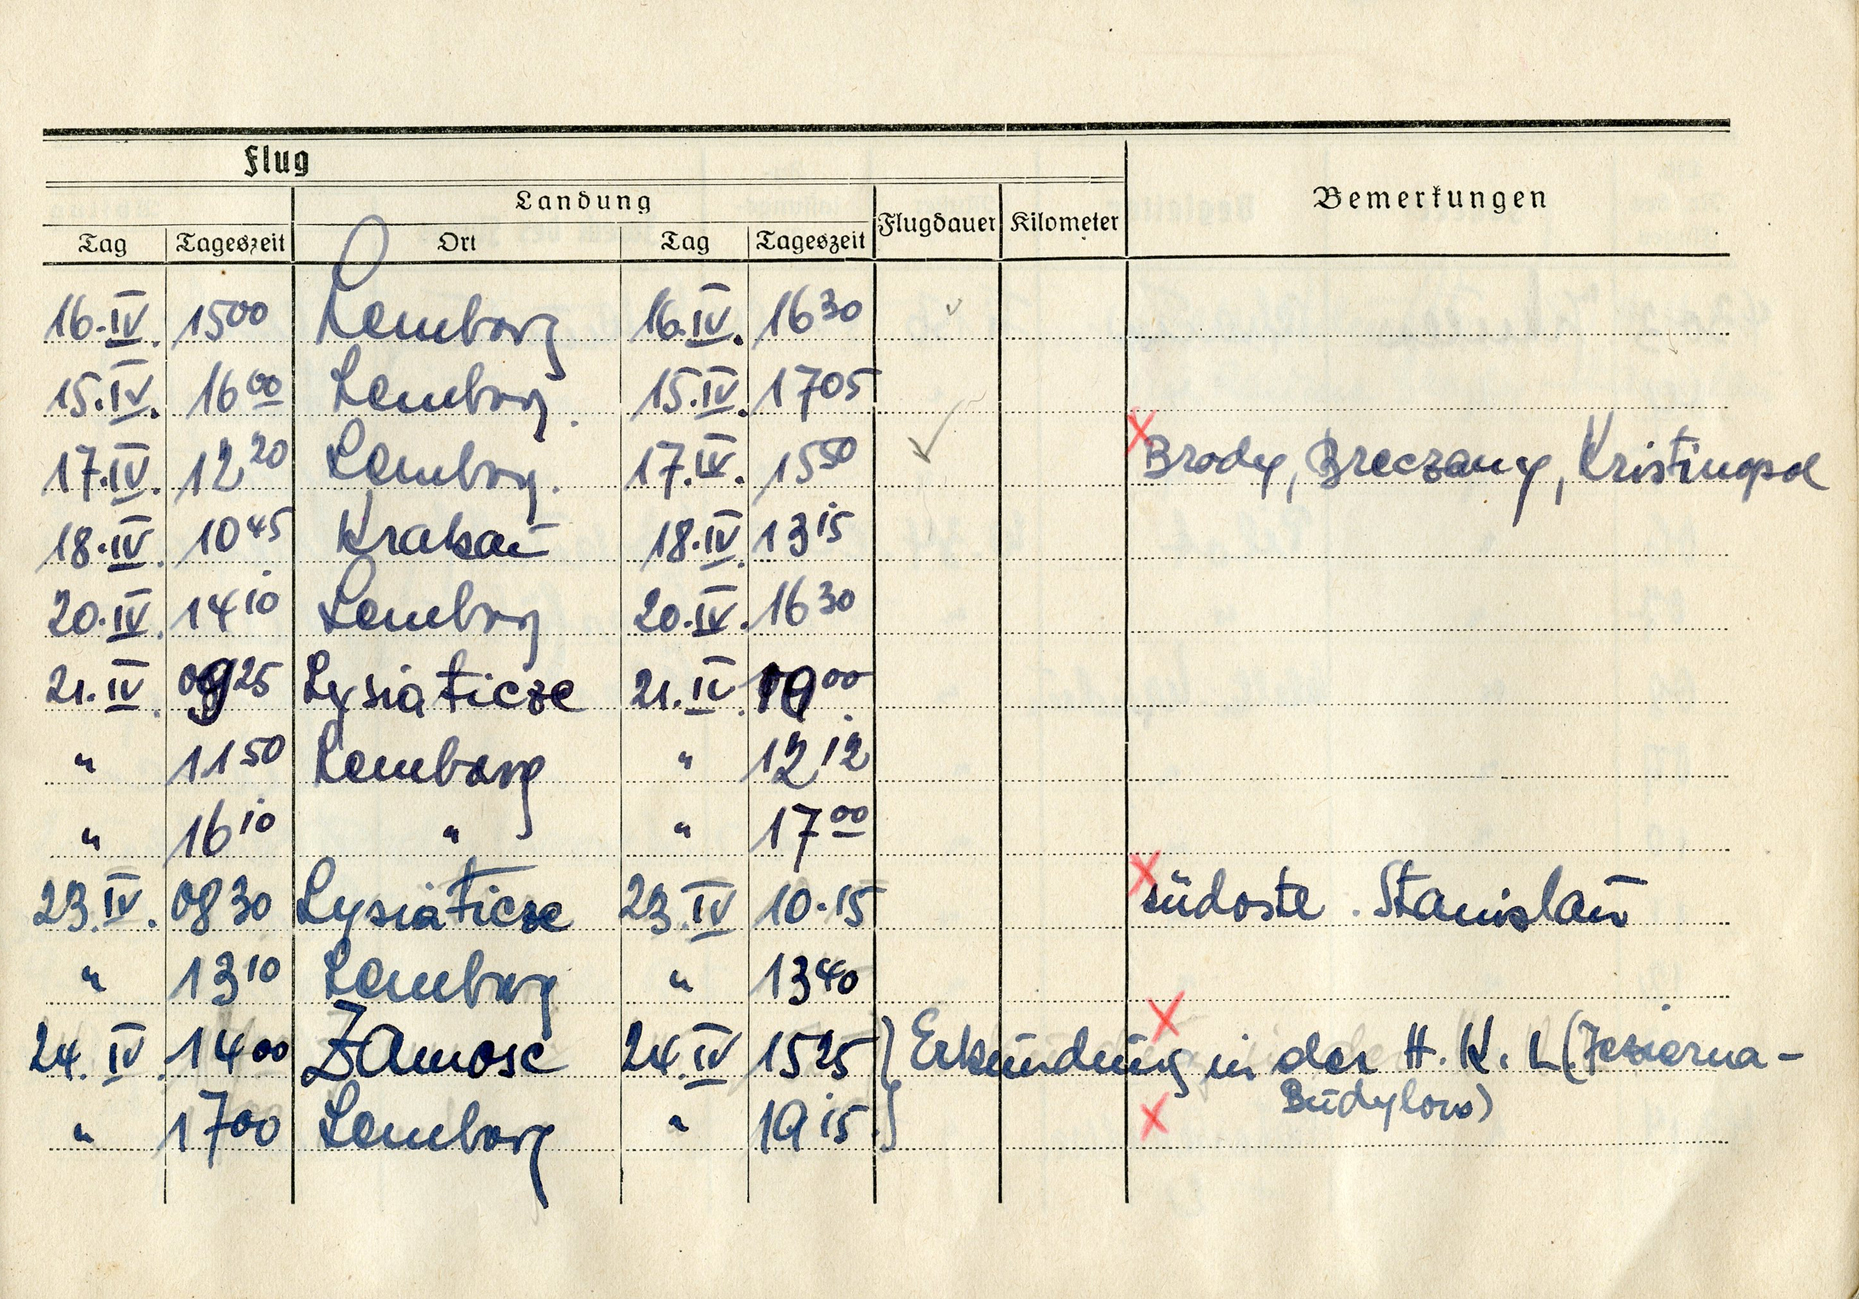 Flug
Landung
Bemerkungen
Flugdauer Kilometer
Tag Tageszeit Ort Tag Tageszeit
16.IV. 15 00 Lemberg 16.IV. 16 30
15.IV. 16 00 Lemberg. 15.IV. 17 05
17.IV. 12 20 Lemberg. 17.IV. 15 50 Brody, Breczany, Kristinopol
18.IV. 10 45 Krakau 18.IV. 13 15
20.IV. 14 10 Lemberg 20.IV. 16 30
21.IV. 09 25 Lysiaticze 21.IV. 10 00
" 11 50 Lemberg " 12 12
" 16 10 " " 17 00
23.IV. 08 30 Lysiaticze 23.IV 10.15 südostw. Stanislau
" 13 10 Lemberg " 13 40
24.IV. 14 00 Zamosc 24.IV 15 25 } Erkundung in der H.K.L (Jezierna-
Budylow)
" 17 00 Lemberg " 19 15. }